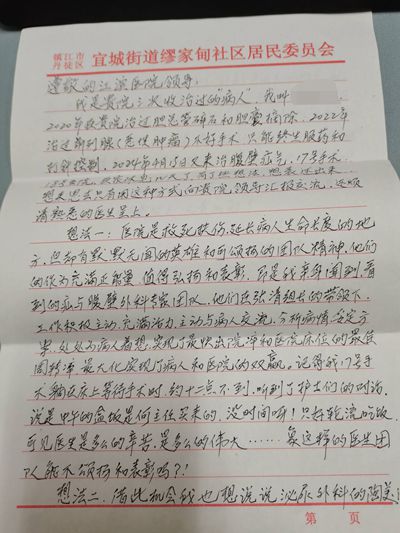 镇江市
丹徒区
宜城街道缪家甸社区居民委员会
尊敬的江滨医院领导：
我是贵院三次收治过的"病人"我叫
2020年我贵院治过胆总管碎石和胆囊摘除，2022年
治过前列腺(恶性肿瘤)不好手术只能终生服药和
打针控制，2024年4月15日又来治腹壁疝气，17号手术
想来想去只有用这种方式向贵院领导汇报交流，还烦
请熟悉的医生呈上。
想法一：医院是救死扶伤，延长病人生命长度的地
方，但却有默默无闻的英雄和可颂扬的团队精神，他们
的作为充满正能量，值得弘扬和表彰，那是我亲身闻到，看
到的疝与腹壁外科专家团队，他们在张清组长的带领下，
工作积极主动，充满活力，主动与病人交流，分析病情，妥定方
案，处处为病人着想，实现了最快出院净和医院床位的最佳
周转率，最大化实现了病人和医院的双赢。记得我17号手
术躺在床上等待手术时，约十二点不到，听到了护士们的对话，
说是中午的盒饭是何主任买来的，没时间呀！只好轮流吃饭，
可见医生是多么的辛苦，是多么的伟大……象这样的医生团
队能不颂扬和表彰吗？！
想法二：借此机会我也想说说泌尿外科的陶美
第 页